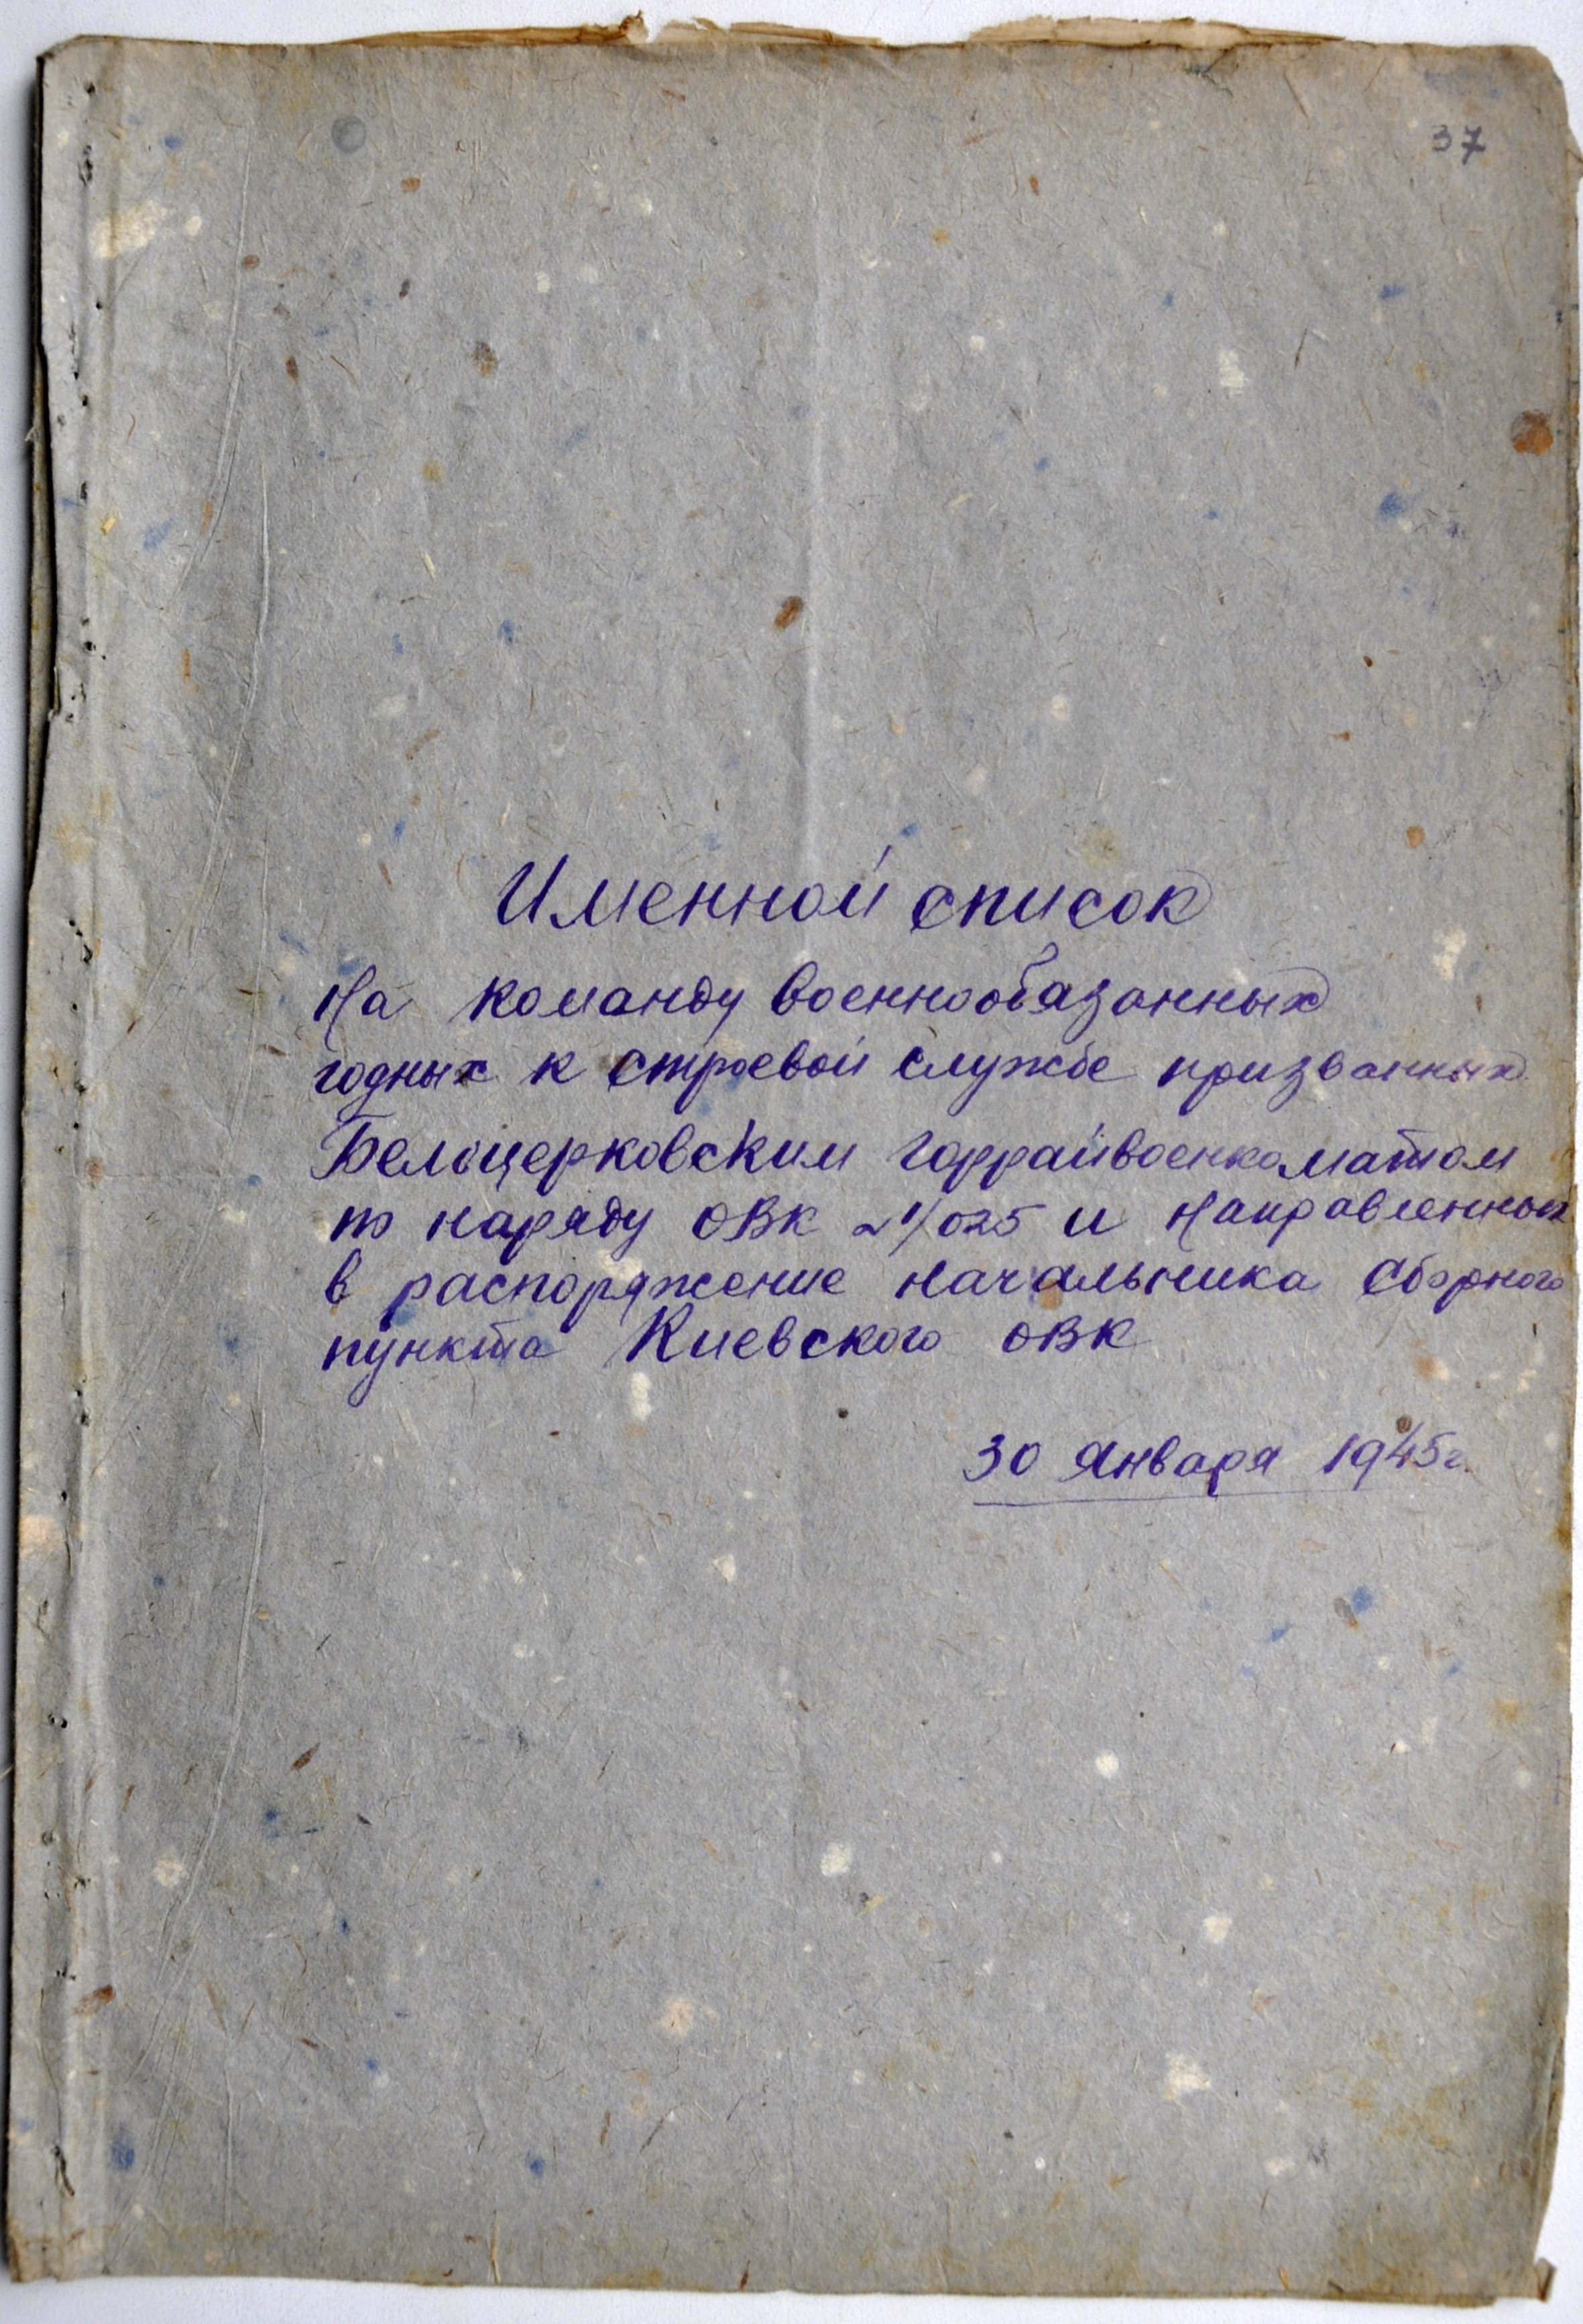 37
Именной список
На команду военнообязанных
годных к строевой службе призванных
Белоцерковским горрайвоенкоматом
по наряду ОВК №1/025 и направленных
в распоряжение начальника сборного
пункта Киевского ОВК
30 января 1945г.